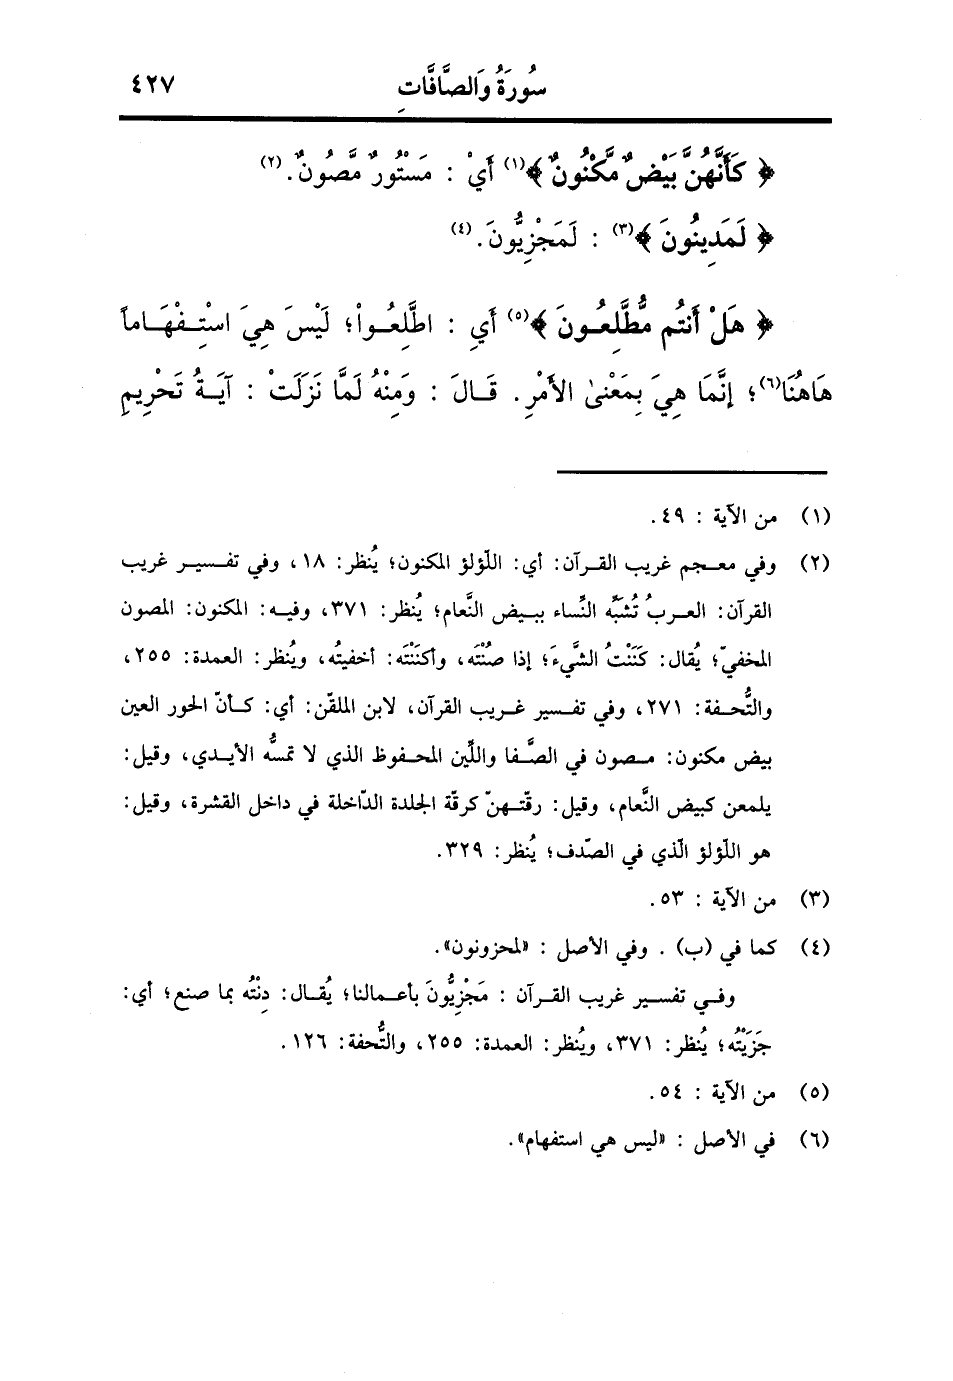 سُورَةُ وَالصَّافَّاتِ ٤٢٧
﴿ كَأَنَّهُنَّ بَيْضٌ مَّكْنُونٌ ﴾(١) أَيْ : مَسْتُورٌ مَّصُونٌ .(٢)
﴿ لَمَدِينُونَ ﴾(٣) : لَمَجْزِيُّونَ .(٤)
﴿ هَلْ أَنتُم مُّطَّلِعُونَ ﴾(٥) أَيِ : اطَّلِعُواْ؛ لَيْسَ هِيَ اسْتِفْهَاماً
هَاهُنَا(٦)؛ إِنَّمَا هِيَ بِمَعْنىٰ الأَمْرِ . قَالَ : وَمِنْهُ لَمَّا نَزَلَتْ : آيَةُ تَحْرِيمِ
(١) من الآية : ٤٩ .
(٢) وفي معجم غريب القرآن: أي: اللّؤلؤ المكنون؛ يُنظر: ١٨ ، وفي تفسير غريب
القرآن: العربُ تُشَبِّه النِّساء ببيض النَّعام؛ يُنظر: ٣٧١، وفيه: المكنون: المصون
المخفيّ؛ يُقال: كَنَنْتُ الشَّيءَ؛ إذا صُنْتَه، وأكنَنْتَه: أخفيتُه، ويُنظر: العمدة: ٢٥٥ ،
والتُّحفة: ٢٧١ ، وفي تفسير غريب القرآن، لابن الملقّن: أي: كأنّ الحور العين
بيض مكنون: مصون في الصَّفا واللِّين المحفوظ الذي لا تمسُّه الأيدي، وقيل:
يلمعن كبيض النَّعام، وقيل: رقّتهنّ كرقّة الجلدة الدّاخلة في داخل القشرة، وقيل:
هو اللّؤلؤ الّذي في الصّدف؛ يُنظر: ٣٢٩.
(٣) من الآية : ٥٣ .
(٤) كما في (ب) . وفي الأصل : «لمحزونون».
وفي تفسير غريب القرآن : مَجْزِيُّونَ بأعمالنا؛ يُقال: دِنْتُه بما صنع؛ أي:
جَزَيْتُه؛ يُنظر: ٣٧١، ويُنظر: العمدة: ٢٥٥ ، والتُّحفة: ١٢٦ .
(٥) من الآية : ٥٤ .
(٦) في الأصل : «ليس هي استفهام».